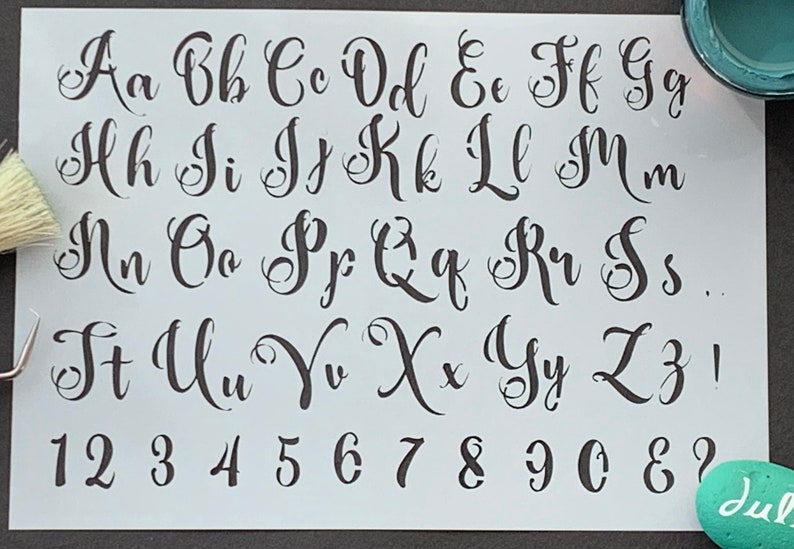 Aa Bb Cc Dd Ee Ff Gg
Hh Ii Jj Kk Ll Mm
Nn Oo Pp Qq Rr Ss ..
Tt Uu Vv Xx Yy Zz !
1 2 3 4 5 6 7 8 9 0 & ?